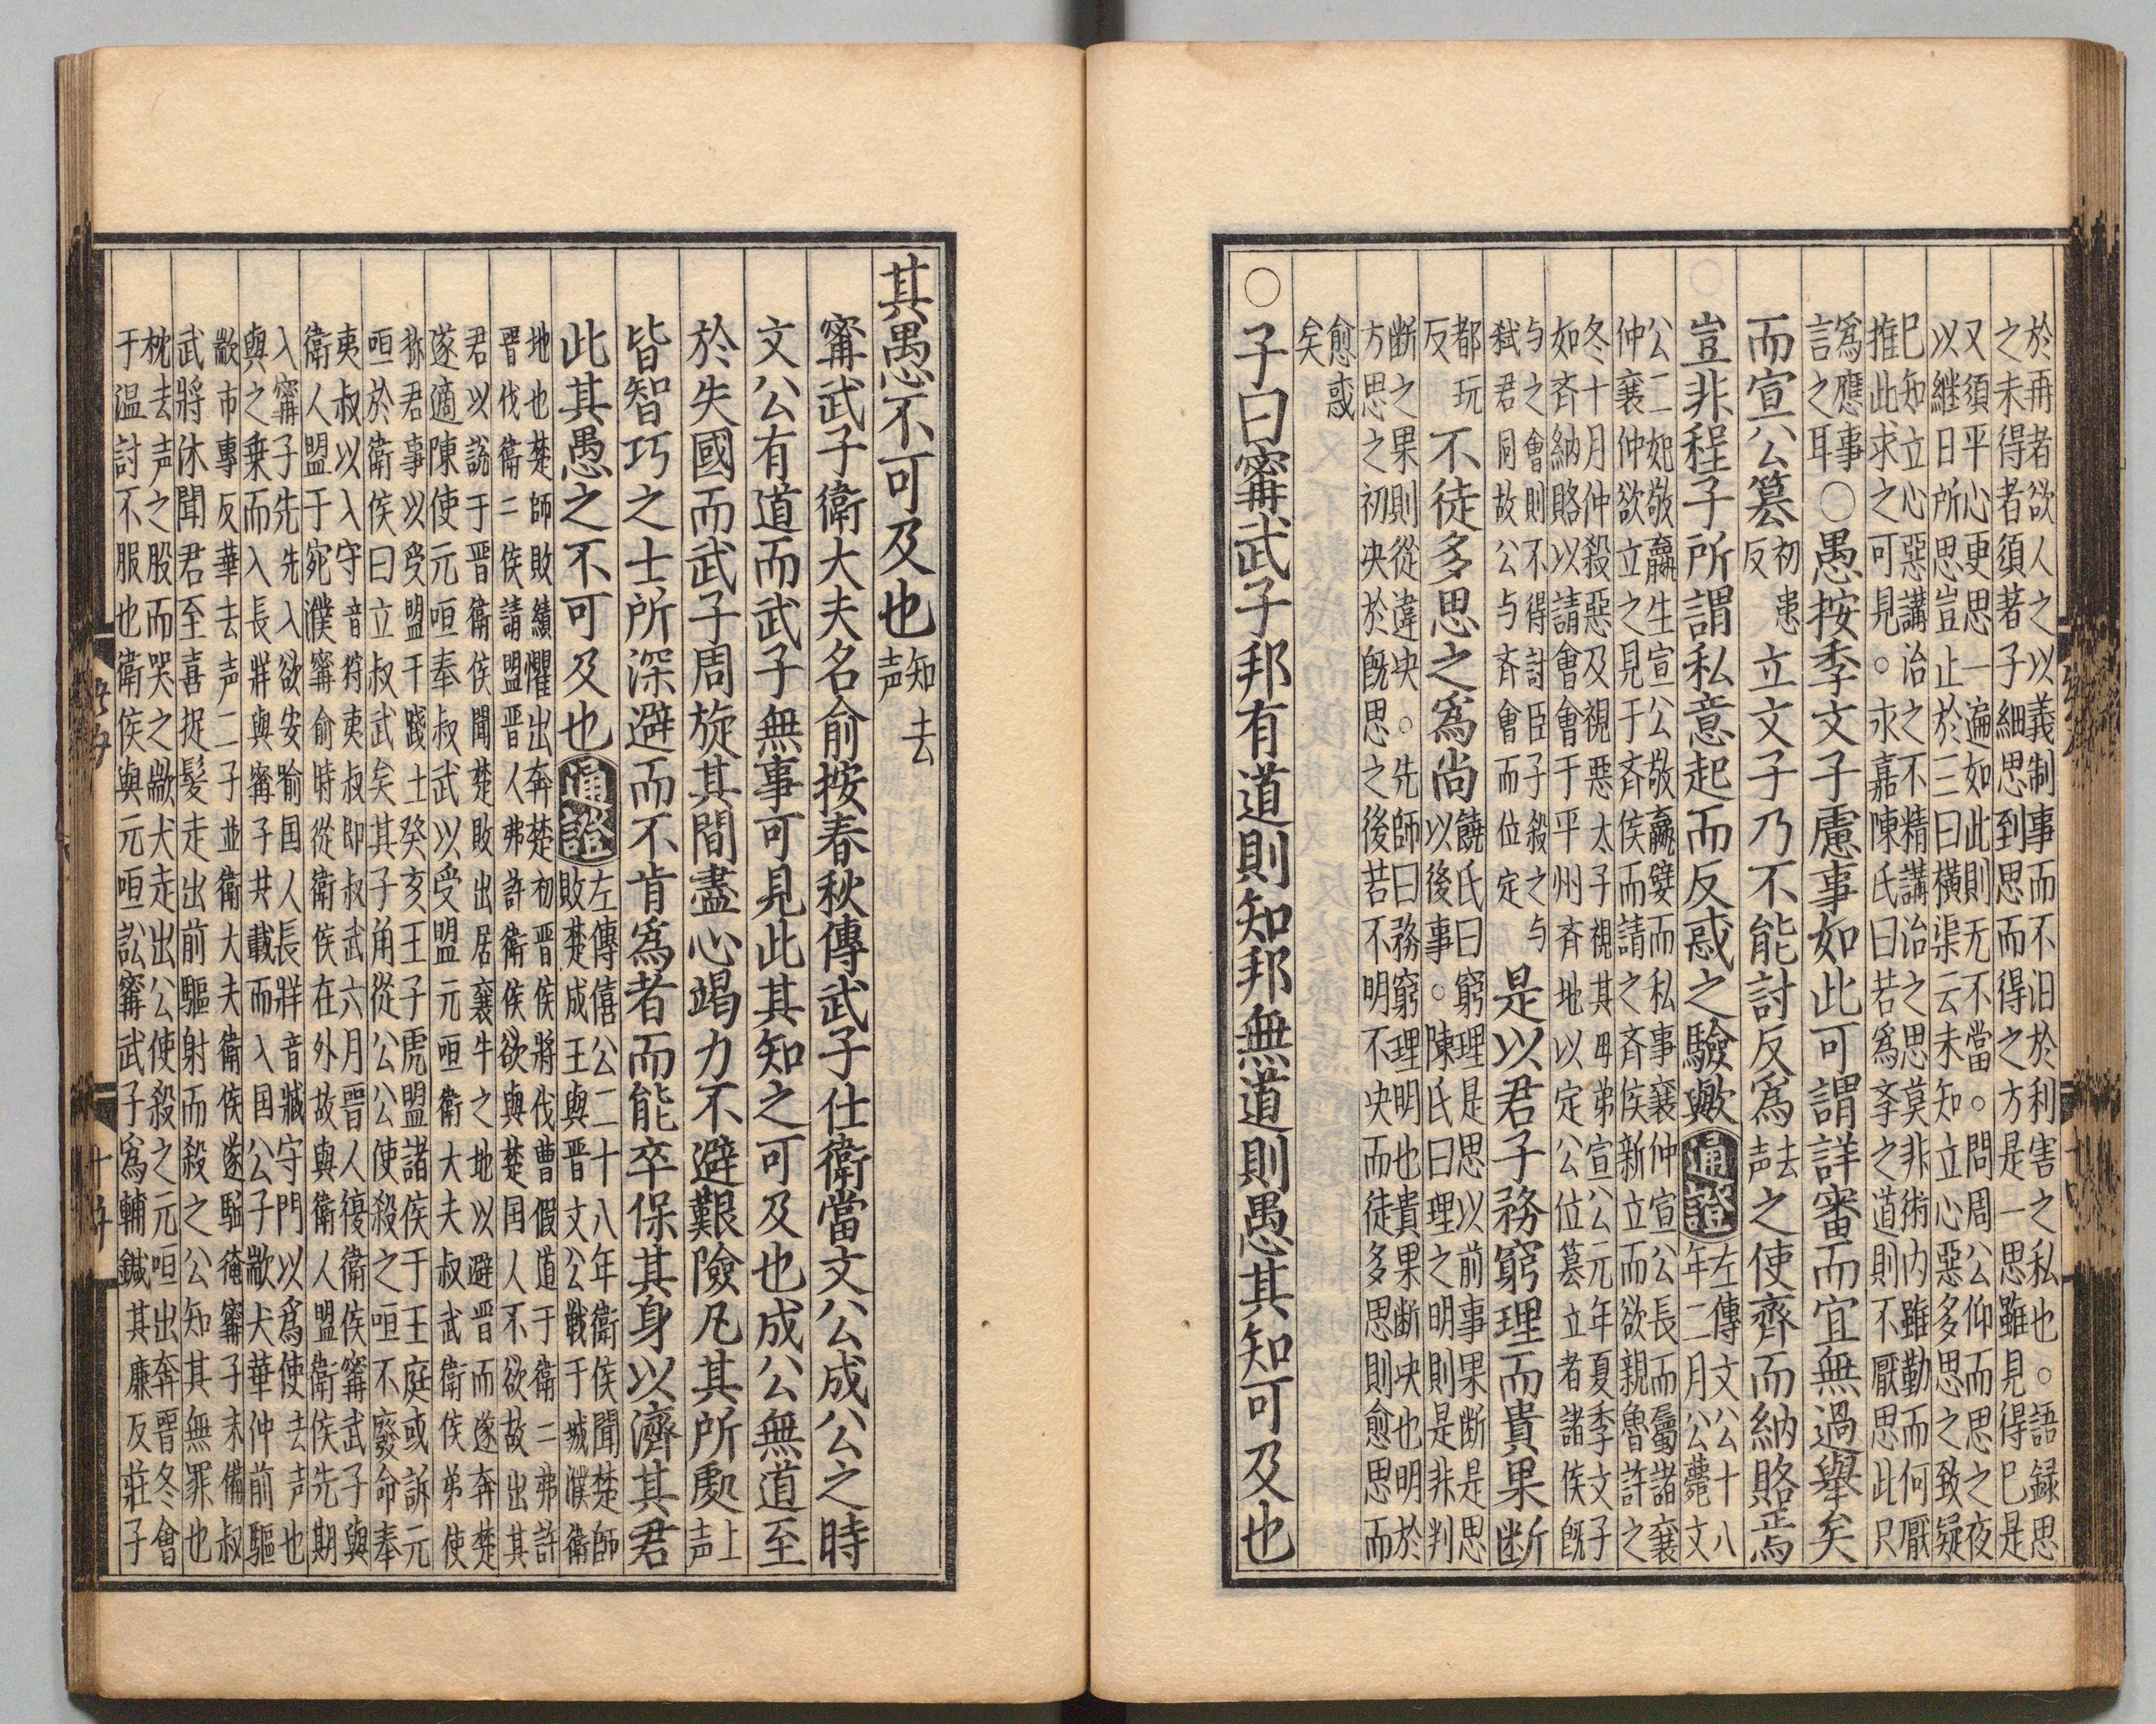 於再者欲人之以義制事而不汨於利害之私也。語録思
之未得者須著子細思到思而得之方是一思雖見得已是
又須平心更思一遍如此則无不當。問周公仰而思之夜
以継日所思豈止於三曰橫渠云未知立心惡多思之致疑
已知立心惡講治之不精講治之思莫非術内雖勤而何厭
推此求之可見。永嘉陳氏曰若爲斈之道則不厭思此只
爲應事
言之耳
○愚按季文子慮事如此可謂詳審而宜無過舉矣
而宣公簒初患反立文子乃不能討反爲去声之使齊而納賂焉
豈非程子所謂私意起而反惑之驗歟通證
左傳文公十八
年二月公薨文
公二妃敬嬴生宣公敬嬴嬖而私事襄仲宣公長而屬諸襄
仲襄仲欲立之見于斉侯而請之斉侯新立而欲親魯許之
冬十月仲殺惡及視惡太子視其毋弟宣公元年夏季文子
如斉納賂以請會會于平州斉地以定公位簒立者諸侯既
与之會則不得討臣子殺之与
弒君同故公与斉會而位定
是以君子務窮理而貴果断
都玩反不徒多思之爲尚
饒氏曰窮理是思以前事果断是思
以後事。陳氏曰理之明則是非判
断之果則從違决。先師曰務窮理明也貴果断决也明於
方思之初决於既思之後若不明不决而徒多思則愈思而
愈惑
矣
○子曰甯武子邦有道則知邦無道則愚其知可及也
其愚不可及也知去声
甯武子衛大夫名俞按春秋傳武子仕衛當文公成公之時
文公有道而武子無事可見此其知之可及也成公無道至
於失國而武子周旋其間盡心竭力不避艱險凡其所處上声
皆智巧之士所深避而不肯爲者而能卒保其身以濟其君
此其愚之不可及也通證
左傳僖公二十八年衛侯聞楚師
敗楚成王與晉文公戰于城濮衛
地也楚師敗績懼出奔楚初晉侯將伐曹假道于衛二弗許
晉伐衛二侯請盟晉人弗許衛侯欲與楚国人不欲故出其
君以説于晉衛侯聞楚敗出居襄牛之地以避晉而遂奔楚
遂適陳使元咺奉叔武以受盟元咺衛大夫叔武衛侯弟使
称君事以受盟于踐土癸亥王子虎盟諸侯于王庭或訴元
咺於衛侯曰立叔武矣其子角從公公使殺之咺不廢命奉
夷叔以入守音狩夷叔即叔武六月晉人復衛侯甯武子與
衛人盟于宛濮甯俞時從衛侯在外故與衛人盟衛侯先期
入甯子先先入欲安喻国人長牂音臧守門以爲使去声也
與之乗而入長牂與甯子共載而入国公子歂犬華仲前驅
歂市專反華去声二子並衛大夫衛侯遂驅掩甯子未備叔
武將沐聞君至喜捉髮走出前驅射而殺之公知其無罪也
枕去声之股而哭之歂犬走出公使殺之元咺出奔晉冬會
于温討不服也衛侯與元咺訟甯武子爲輔鍼其廉反莊子